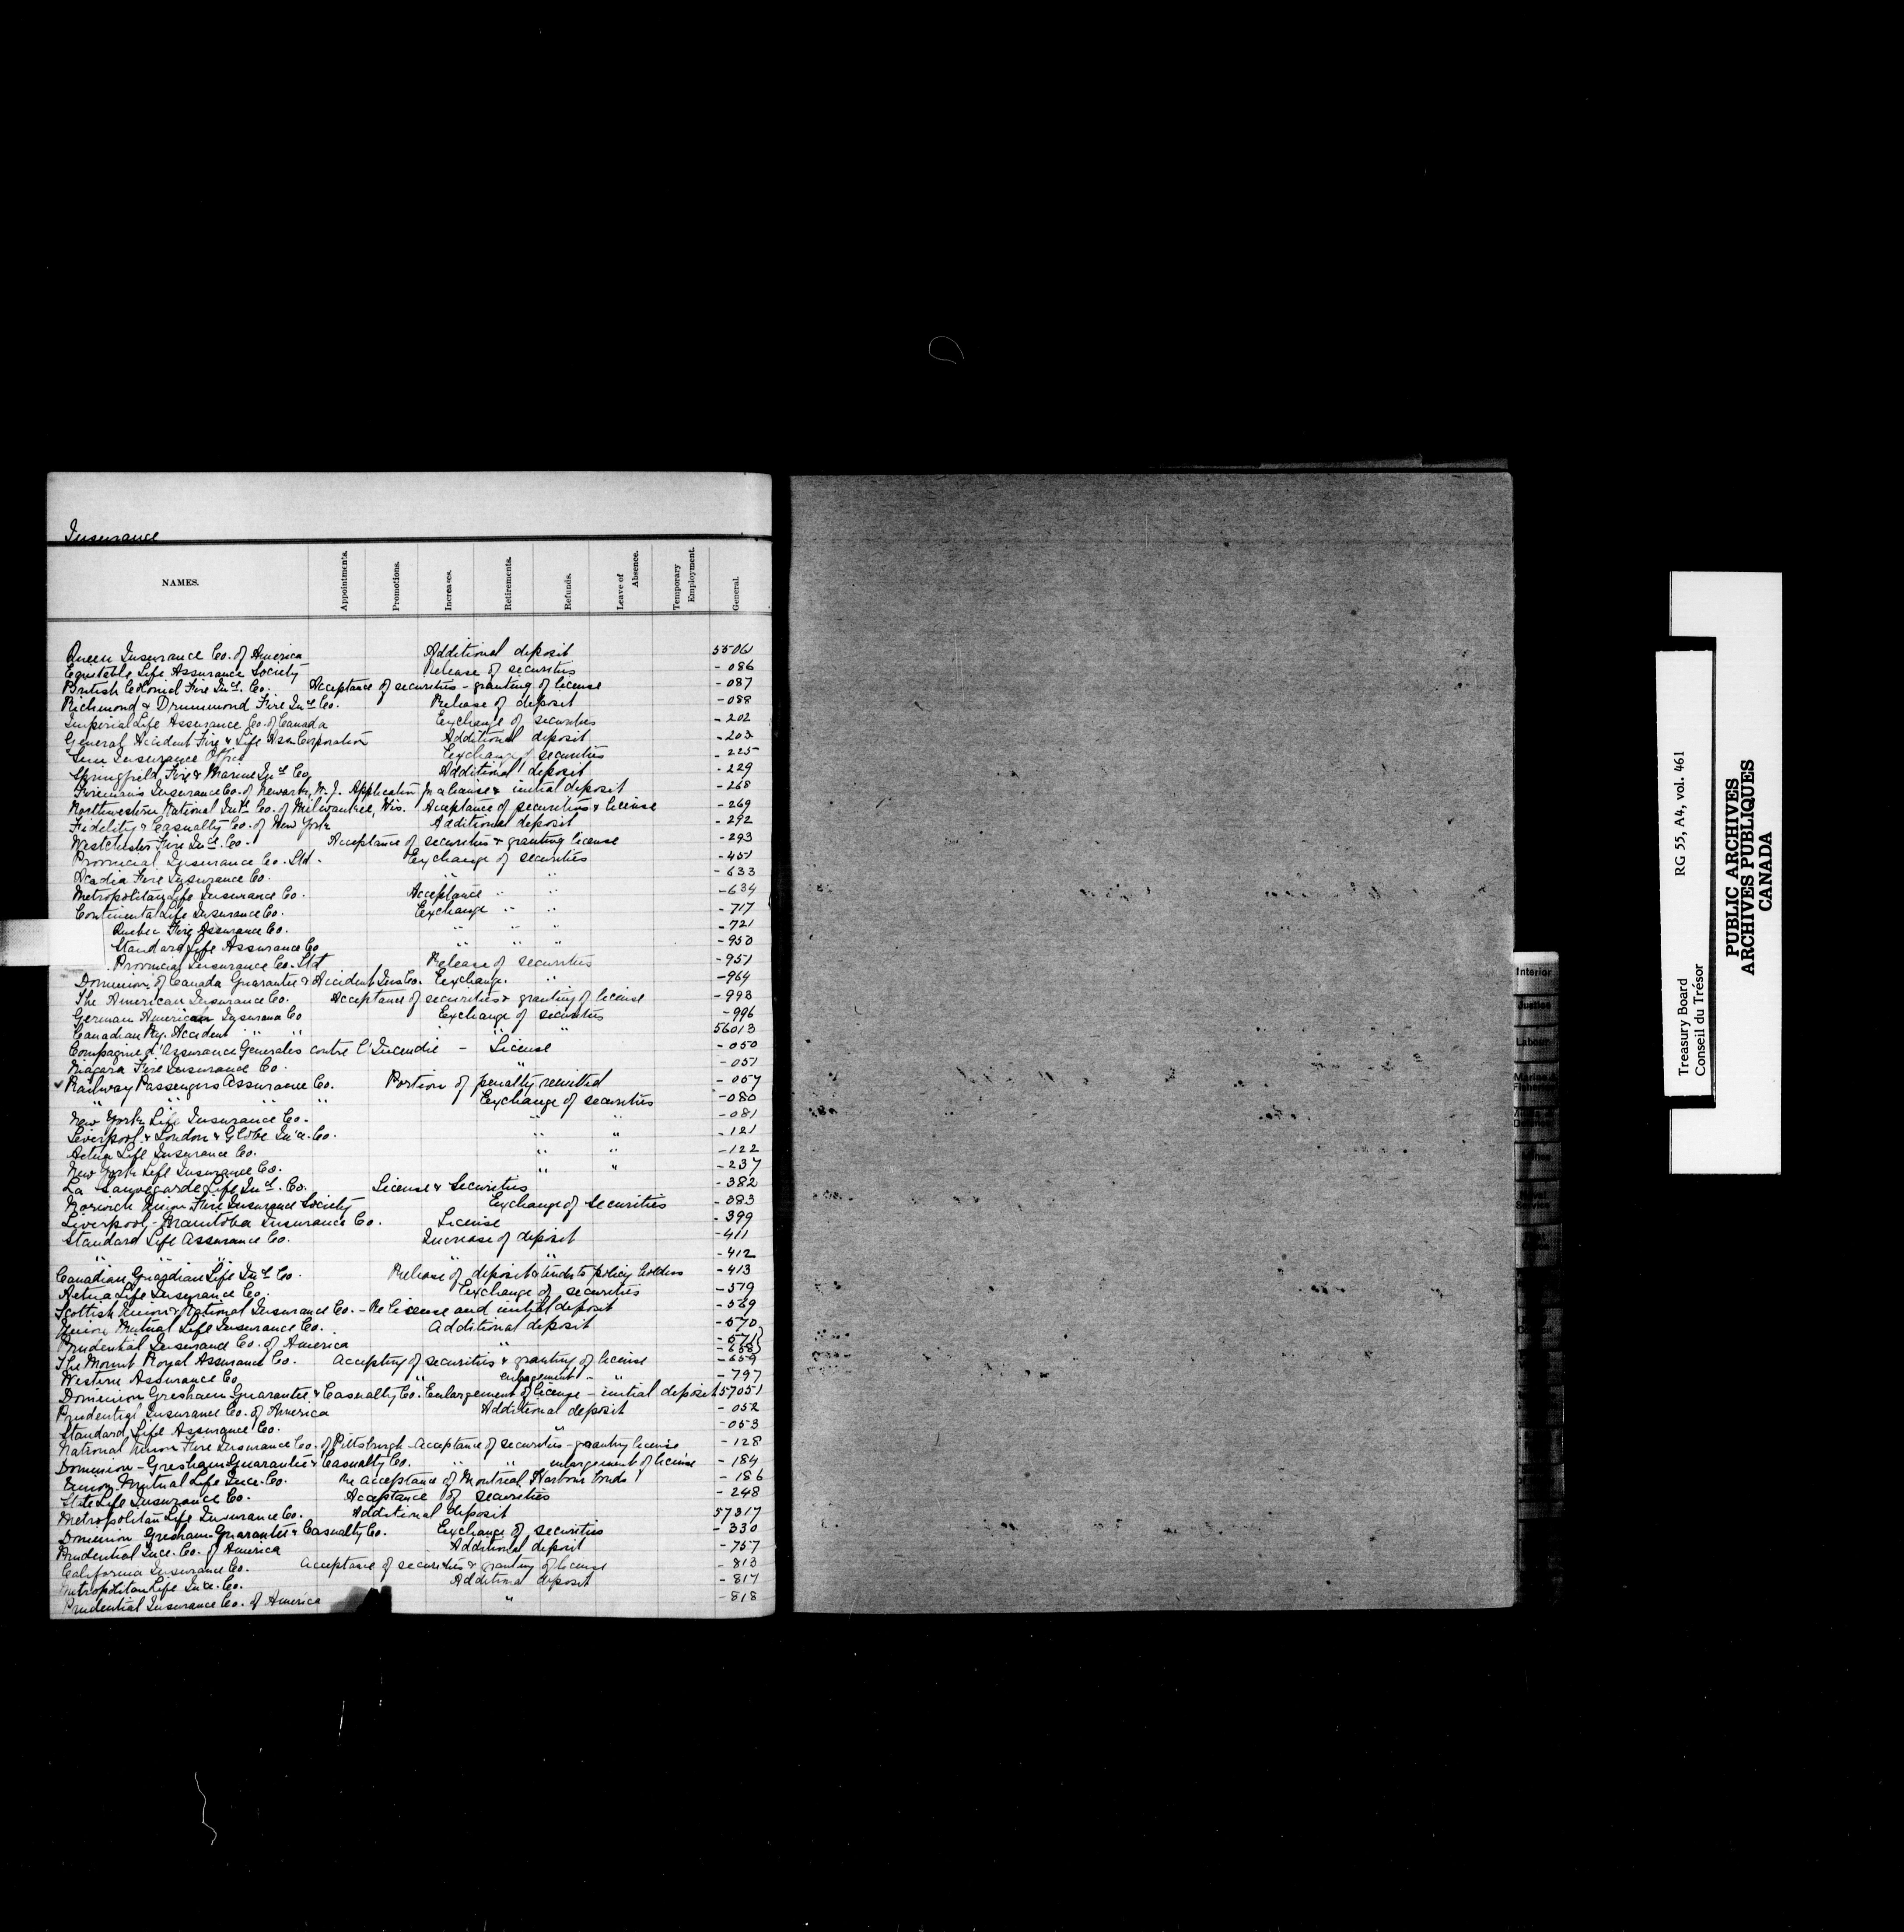 Insurance
NAMES. Appointments. Promotions. Increases. Retirements. Refunds. Leave of Absence. Temporary Employment. General.
Queen Insurance Co. of America Additional deposit 55061
Equitable Life Assurance Society Release of securities - 086
British Colonial Fire Ince. Co. Acceptance of securities - granting of license - 087
Richmond & Drummond Fire Ince Co. Release of deposit - 088
Imperial Life Assurance Co. of Canada Exchange of securities - 202
General Accident Fire & Life Assn Corporation Additional deposit - 203
Sun Insurance Office Exchange of securities - 225
Springfield Fire & Marine Ince Co. Additional deposit - 229
Firemans Insurance Co. of Newark, N.J. Application for a license & initial deposit - 268
Northwestern National Ince. Co. of Milwaukee, Wis. Acceptance of securities & license - 269
Fidelity & Casualty Co. of New York Additional deposit - 292
Westchester Fire Ince. Co. Acceptance of securities & granting license - 293
Provincial Insurance Co. Ltd. Exchange of securities - 451
Acadia Fire Insurance Co. " " - 633
Metropolitan Life Insurance Co. Acceptance " " - 634
Continental Life Insurance Co. Exchange " " - 717
Quebec Fire Assurance Co. " " " - 721
Standard Life Assurance Co " " " - 950
Provincial Insurance Co. Ltd Release of securities - 951
Dominion of Canada Guarantee & Accident Ins Co. Exchange. " - 964
The American Insurance Co. Acceptance of securities & granting of license - 993
German American Insurance Co Exchange of securities - 996
Canadian Ry. Accident " " " " 56013
Compagnie d'Assurance Generales contre l'Incendie - License - 050
Niagara Fire Insurance Co. " - 051
✓ Railway Passengers Assurance Co. Portion of penalty remitted - 057
" " " " Exchange of securities - 080
New York Life Insurance Co. " " - 081
Liverpool & London & Globe Ince. Co. " " - 121
Aetna Life Insurance Co. " " - 122
New York Life Insurance Co. " " - 237
La Sauvegarde Life Ince. Co. License & Securities - 382
Norwich Union Fire Insurance Society Exchange of securities - 383
Liverpool-Manitoba Insurance Co. License - 399
Standard Life Assurance Co. Increase of deposit - 411
" " " " " - 412
Canadian Guardian Life Ince Co. Release of deposit & to policy holders - 413
Aetna Life Insurance Co. Exchange of securities - 519
Scottish Union & National Insurance Co. - Re license and initial deposit - 569
Union Mutual Life Insurance Co. Additional deposit - 570
Prudential Insurance Co. of America " - 571} - 658}
The Mount Royal Assurance Co. Accepting of securities & granting of license - 659
Western Assurance Co " enlargement " " - 797
Dominion Gresham Guarantee & Casualty Co. Enlargement of license - initial deposit 57051
Prudential Insurance Co. of America Additional deposit - 052
Standard Life Assurance Co. " - 053
National Union Fire Insurance Co. of Pittsburgh - Acceptance of securities - granting license - 128
Dominion - Gresham Guarantee & Casualty Co. " " enlargement of license - 184
Union Mutual Life Ince. Co. Re acceptance of Montreal Harbour bonds - 186
State Life Insurance Co. Acceptance of securities - 248
Metropolitan Life Insurance Co. Additional deposit 57317
Dominion Gresham Guarantee & Casualty Co. Exchange of securities - 330
Prudential Ince. Co. of America Additional deposit - 757
California Insurance Co. Acceptance of securities & granting of license - 813
Metropolitan Life Ince. Co. Additional deposit - 817
Prudential Insurance Co. of America " - 818
Interior
Justice
Labour
Marine & Fisheries
Treasury Board RG 55, A4, vol. 461
Conseil du Trésor
PUBLIC ARCHIVES
ARCHIVES PUBLIQUES
CANADA